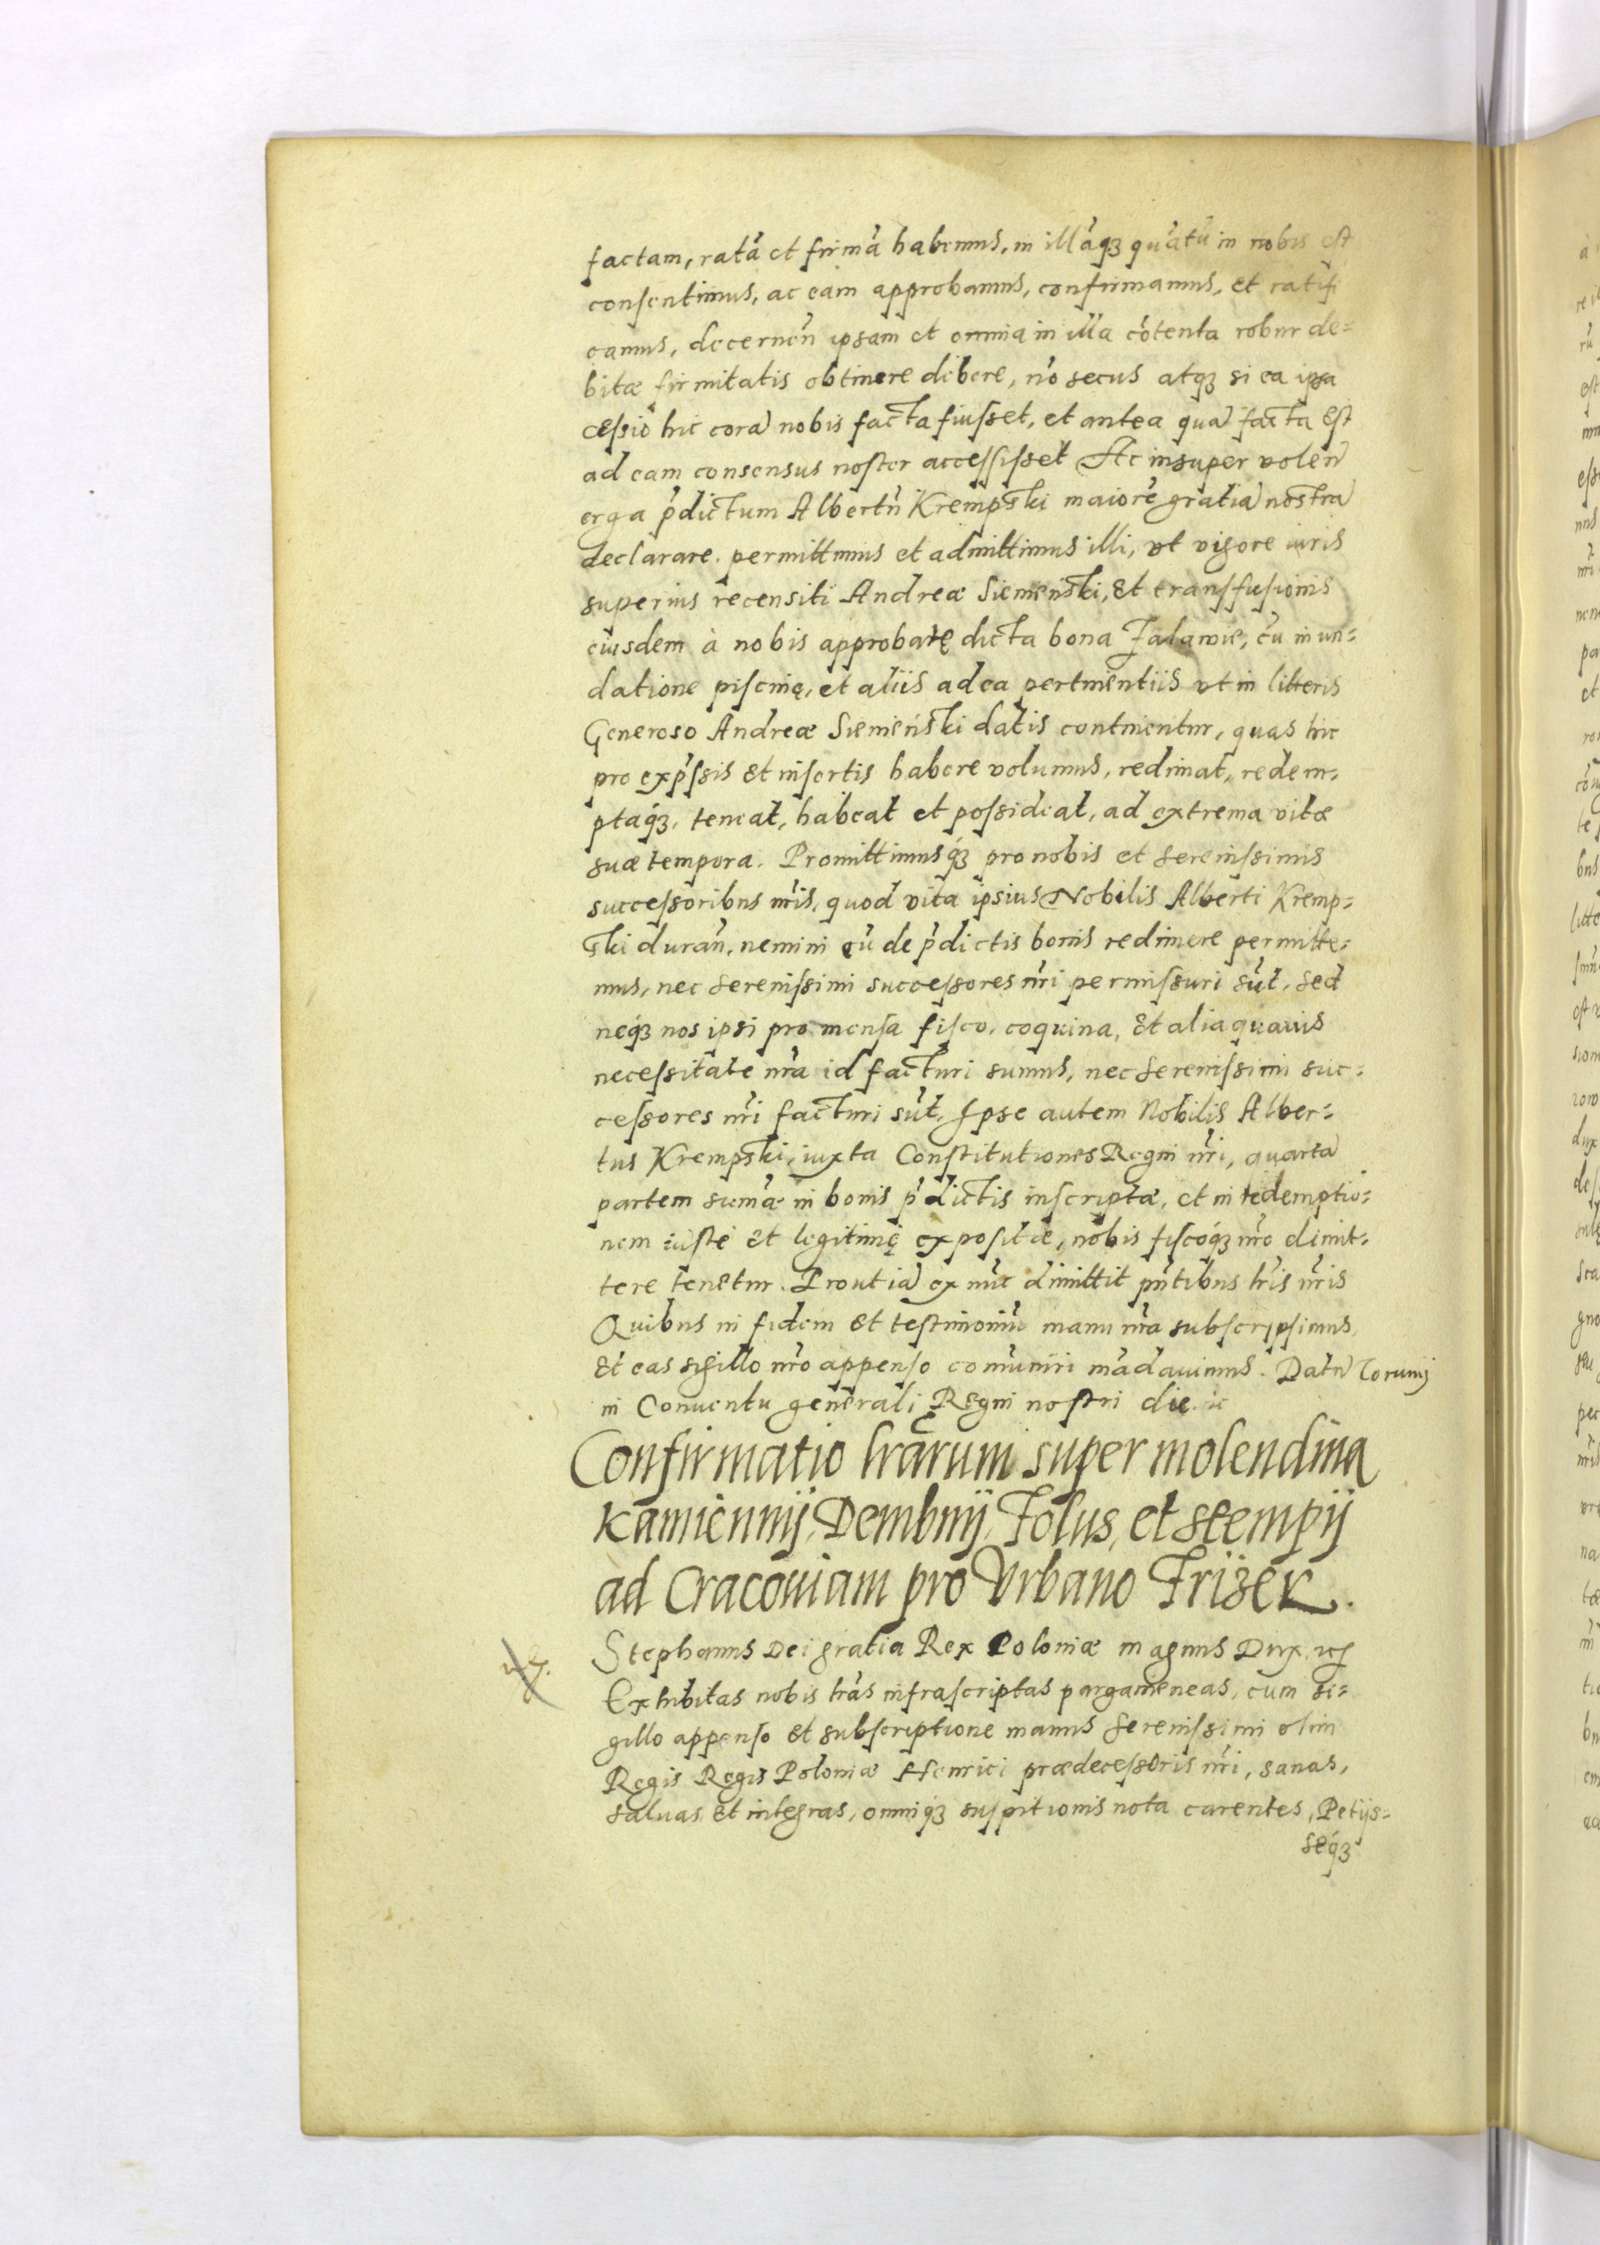 factam, ratã et firmã habemus, in illãqȝ quãtũ in nobis est
consentimus, ac eam approbamus, confirmamus, et ratifi
camus, decernen̄ ipsam et omnia in illa cõtenta robur de=
bitæ firmitatis obtinere debere, nõ secus atqȝ si ea ipsa
cessio hic corã nobis facta fuisset, et antea quã facta est
ad eam consensus noster accessisset Ac insuper volen̄
erga p̃dictum Albertũ Krempski maiorẽ gratiã nostrã
declarare. permittimus et admittimus illi, vt vigore iuris
superius recensiti Andreæ Siemieński, et transfusionis
eiusdem à nobis approbatę dicta bona Zalawie, cũ inun=
datione piscinę, et aliis ad ea pertinentiis vt in litteris
Generoso Andreæ Siemieński datis continentur, quas hic
pro exp̃ssis et insertis habere volumus, redimat, redem=
ptaqȝ, teneat, habeat et possideat, ad extrema vitæ
suæ tempora. Promittimusqȝ pro nobis et Serenissimis
successoribus nr̃is, quod vita ipsius Nobilis Alberti Kremp=
ski duran̄, nemini eũ de p̃dictis bonis redimere permitte=
mus, nec Serenissimi successores nr̃i permissuri sũt, sed
neqȝ nos ipsi pro mensa fisco, coquina, et alia quauis
necessitate nr̃a id facturi sumus, nec Serenissimi suc=
cessores nr̃i facturi sũt. Ipse autem Nobilis Alber=
tus Krempski, iuxta Constitutiones Regni nr̃i, quartã
partem sum̃æ in bonis p̃dictis inscriptæ, et in redemptio=
nem iustè et legitimę expositæ, nobis fiscoqȝ nr̃o dimit=
tere tenetur. Prout iã ex nũc dimittit pñtibus lr̃is nr̃is
Quibus in fidem et testimoniũ manu nr̃a subscripsimus,
et eas sigillo nr̃o appenso com̃uniri mãdauimus. Datũ Torunij
in Conuentu generali Regni nostri die
Confirmatio lr̃arum super molendina
Kamiennij, Dembnij, Folus, et Stempij
ad Cracouiam pro Vrbano Frizer.
Stephanus Dei gratia Rex Poloniæ magnus Dux, ec̃
Exhibitas nobis lr̃as infrascriptas pargameneas, cum si=
gillo appenso et subscriptione manus Serenissimi olim
Regis Regis Poloniæ Henrici prædecessoris nr̃i, sanas,
saluas et integras, omniqȝ suspitionis nota carentes, Petijs=
seqȝ